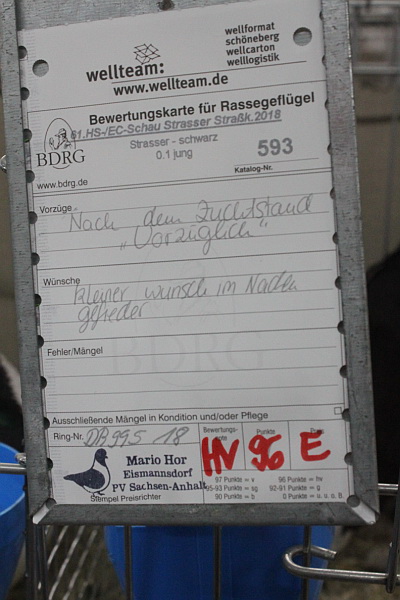 wellteam:
www.wellteam.de
wellformat
schöneberg
wellcarton
welllogistik
Bewertungskarte für Rassegeflügel
61.HS-/EC-Schau Strasser Straßk.2018
Strasser - schwarz
0.1 jung
593
Katalog-Nr.
BDRG
www.bdrg.de
Vorzüge
Nach dem Zuchtstand
„Vorzüglich"
Wünsche
kleiner wunsch im Nacken
gefieder
Fehler/Mängel
BDRG
Ausschließende Mängel in Kondition und/oder Pflege
Ring-Nr. DA 995 18
Bewertungs-
note
Punkte
Preis
HV 96 E
Mario Hor
Eismannsdorf
PV Sachsen-Anhalt
Stempel Preisrichter
97 Punkte = v 96 Punkte = hv
93-95 Punkte = sg 92-91 Punkte = g
90 Punkte = b 0 Punkte = u. o. u. B.